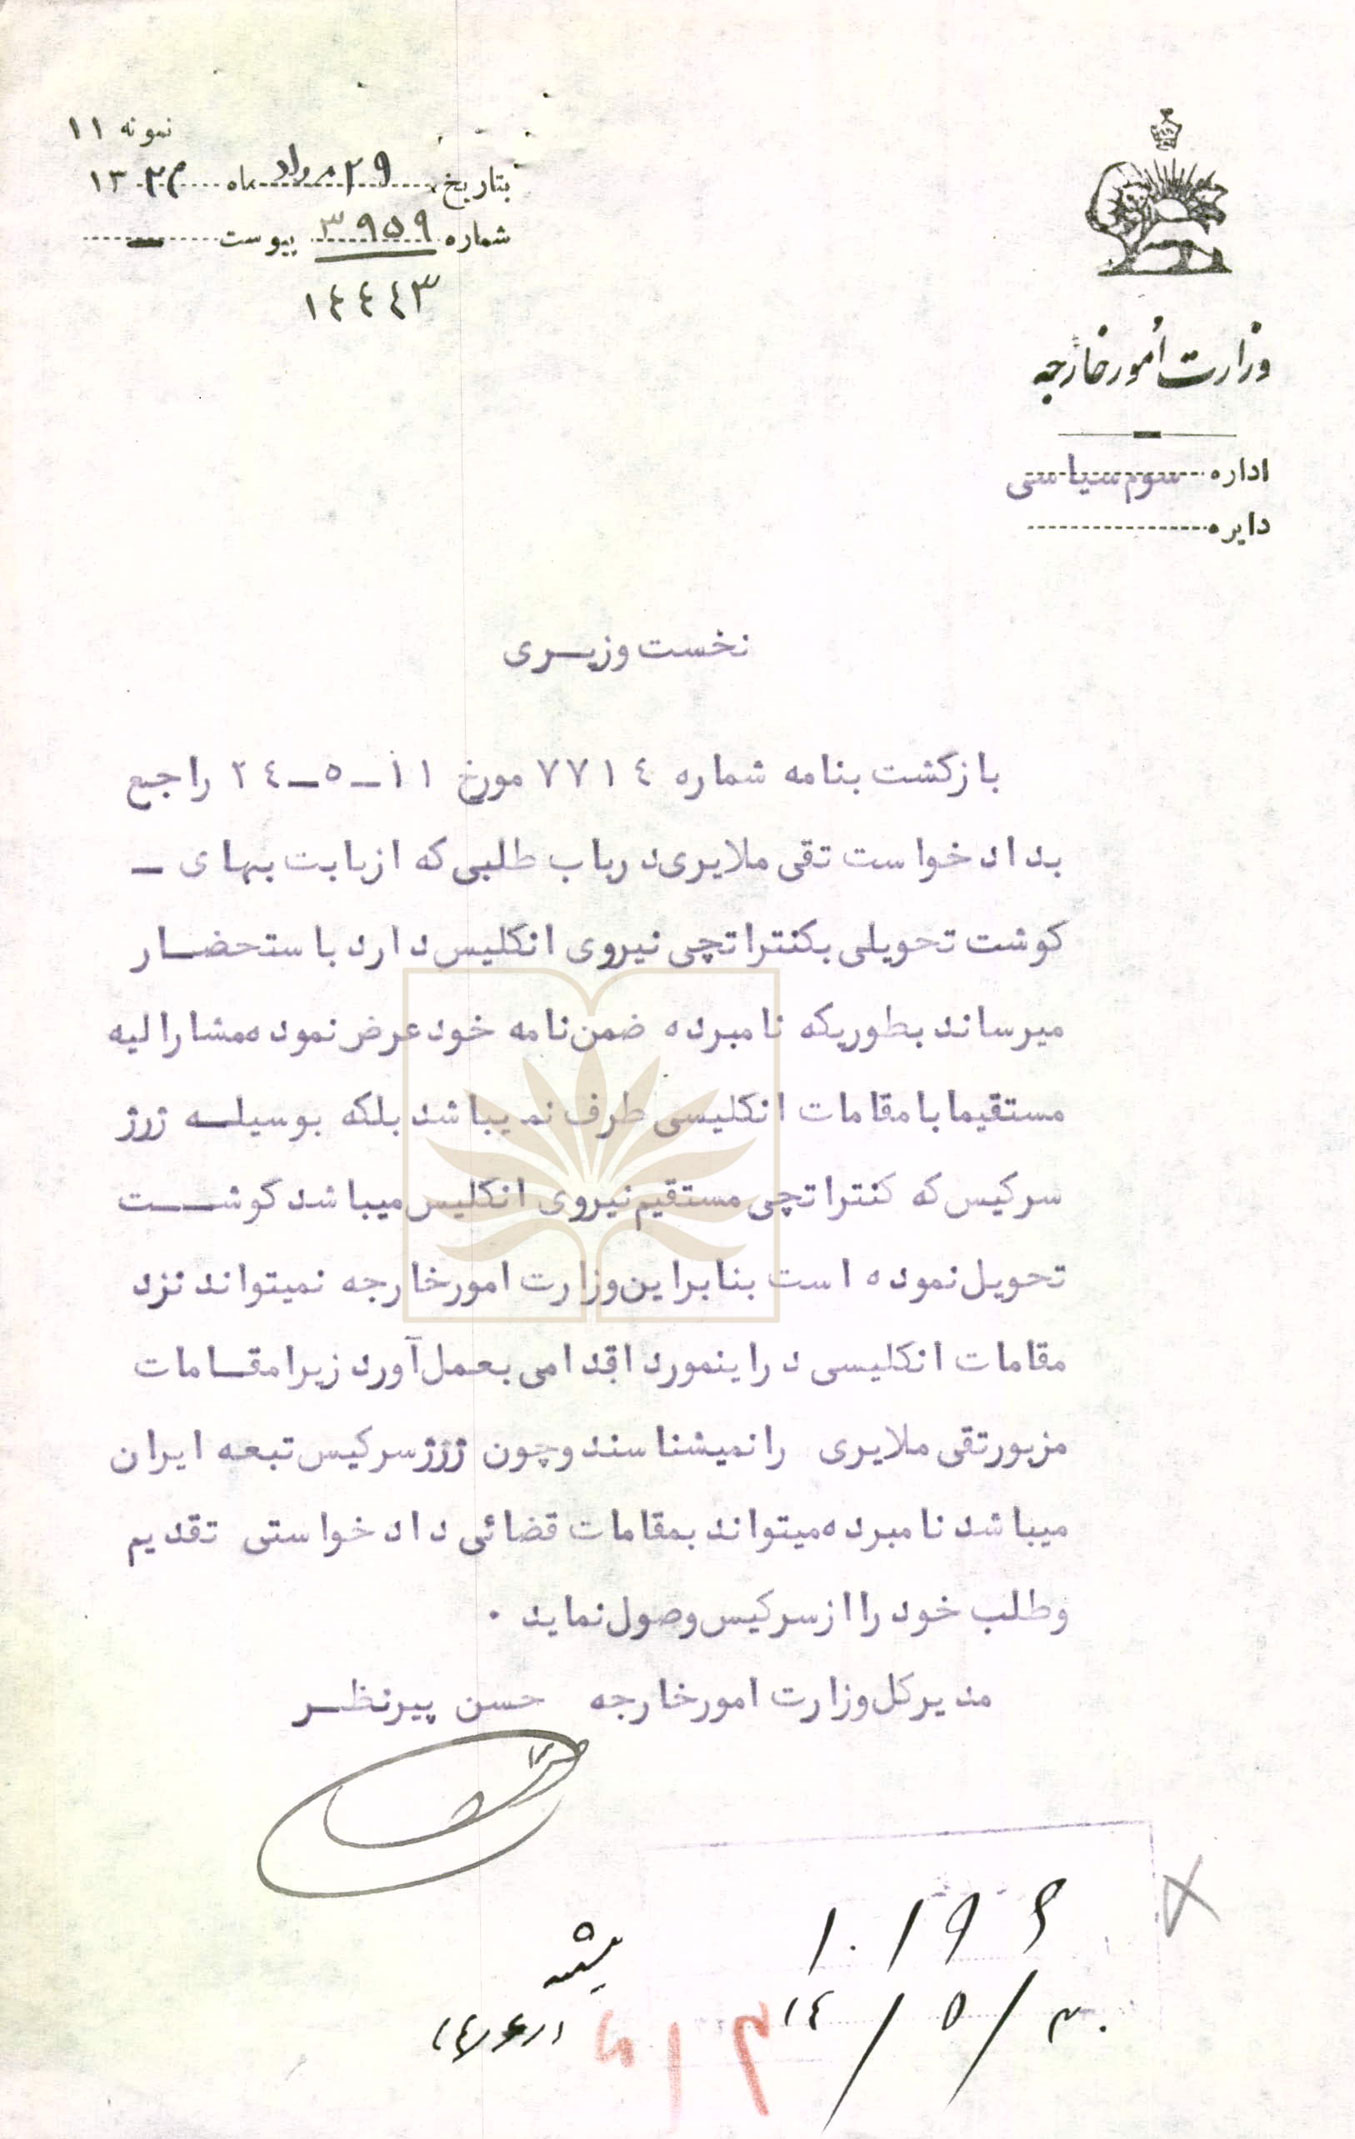 نمونه ۱۱
بتاریخ ۲۹ مرداد ماه ۱۳۲۴
شماره ۳۹۵۹ پیوست ـ
۱٤٤٤۳
وزارت اُمور خارجه
اداره سوم سیاسی
دایره
نخست وزیـــری
بازکشت بنامه شماره ۷۷۱٤ مورخ ۱۱ــ٥ــ۲٤ راجع
بدادخواست تقی ملایری درباب طلبی که ازبابت بهای ــ
کوشت تحویلی بکنتراتچی نیروی انکلیس دارد باستحضـــار
میرساند بطوریکه نامبرده ضمن نامه خود عرض نموده مشارالیه
مستقیما بامقامات انکلیسی طرف نمیباشد بلکه بوسیلـــه ژرژ
سرکیس که کنتراتچی مستقیم نیروی انکلیس میباشد کوشـــت
تحویل نموده است بنابراین وزارت امورخارجه نمیتواند نزد
مقامات انکلیسی دراینمورد اقدامی بعمل آورد زیرا مقـــامات
مزبور تقی ملایری را نمیشناسند وچون ژرژ سرکیس تبعه ایران
میباشد نامبرده میتواند بمقامات قضائی دادخواستی تقدیم
وطلب خود را از سرکیس وصول نماید ۰
مدیرکل وزارت امورخارجه حسن پیرنظـــر
۱۰۱۹۶
۳۰/٥/۱٤